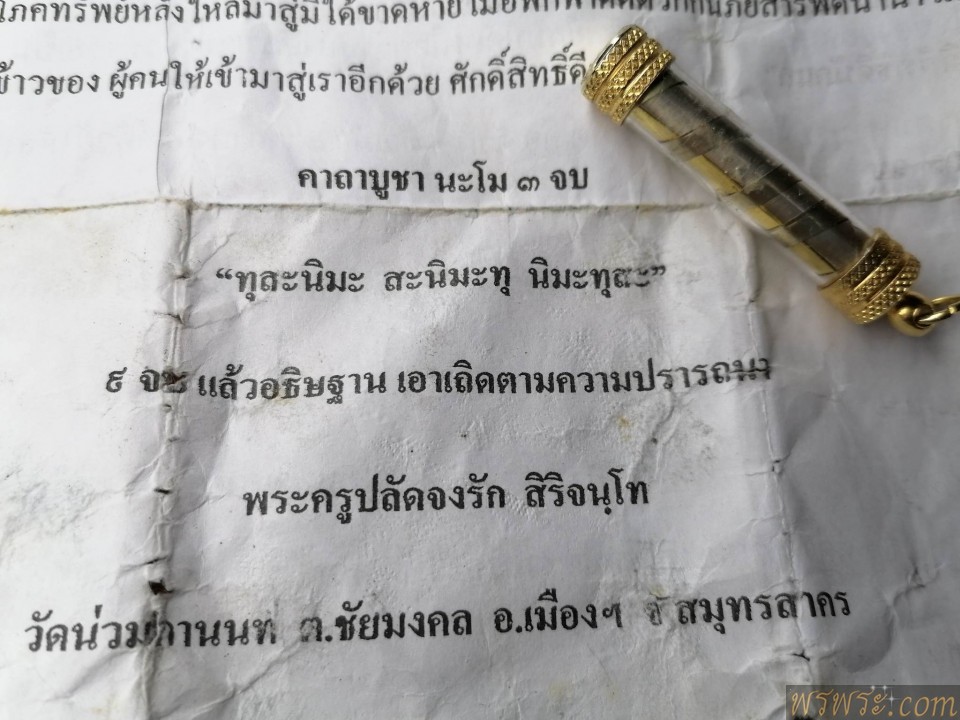 โภคทรัพย์หลั่งไหลมาสู่มิได้ขาดหาย
ข้าวของ ผู้คนให้เข้ามาสู่เราอีกด้วย ศักดิ์สิทธิ์
คาถาบูชา นะโม ๓ จบ
“ทุสะนิมะ สะนิมะทุ นิมะทุสะ”
๙ จบ แล้วอธิษฐาน เอาเถิดตามความปรารถนา
พระครูปลัดจงรัก สิริจนฺโท
วัดน่วมกานนท์ ต.ชัยมงคล อ.เมืองฯ จ สมุทรสาคร
พรพระ.com